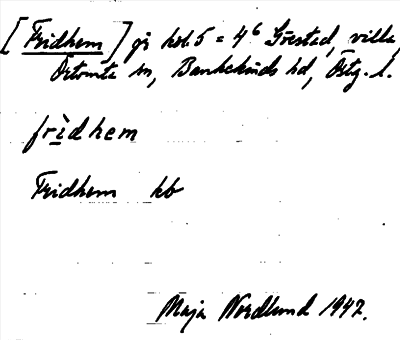 [Fridhem] på kol. 5 = 4⁶ Grestad, villa,
Örtomta sn, Bankekinds hd, Östg. l.
frìdhem
Fridhem kb
Maja Nordlund 1947.